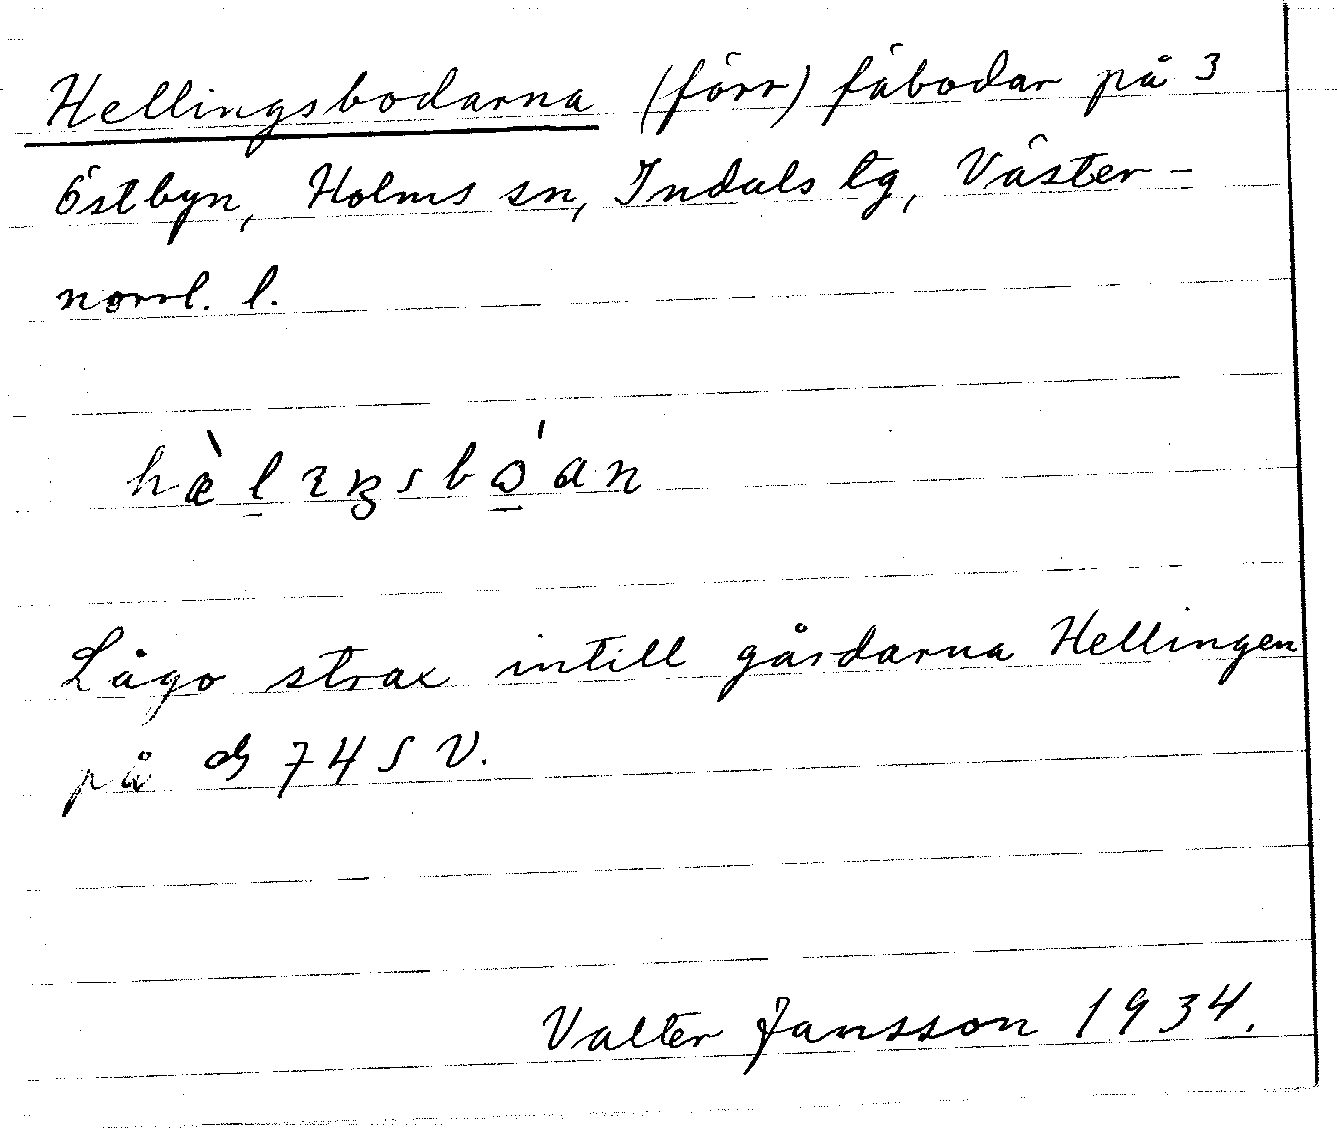 Hellingsbodarna (förr) fäbodar på 3
Östbyn, Holms sn, Indals tg, Väster-
norrl. l.
Lågo strax intill gårdarna Hellingen
på 74 SV.
Valter Jansson 1934.